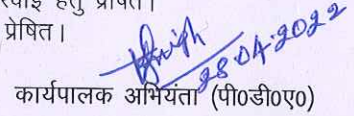 हेतु प्रेषित।
प्रेषित।
28.04.2022
कार्यपालक अभियंता (पी0डी0ए0)